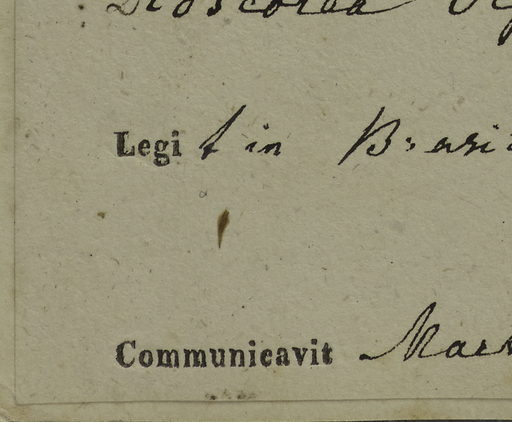 Dioscorea
Legit in Brasi
Communicavit Mar